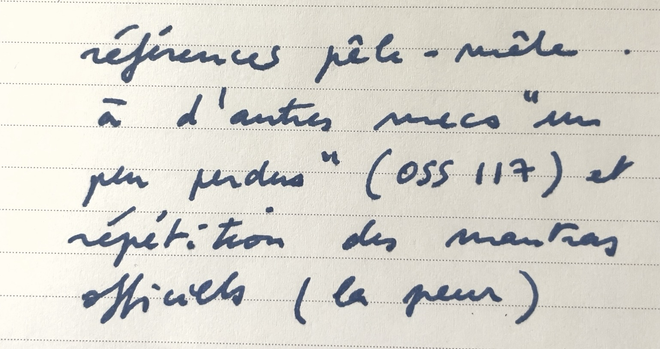 références pêle-mêle
à d'autres mecs "un
peu perdus" (OSS 117) et
répétition des mantras
officiels (la peur)